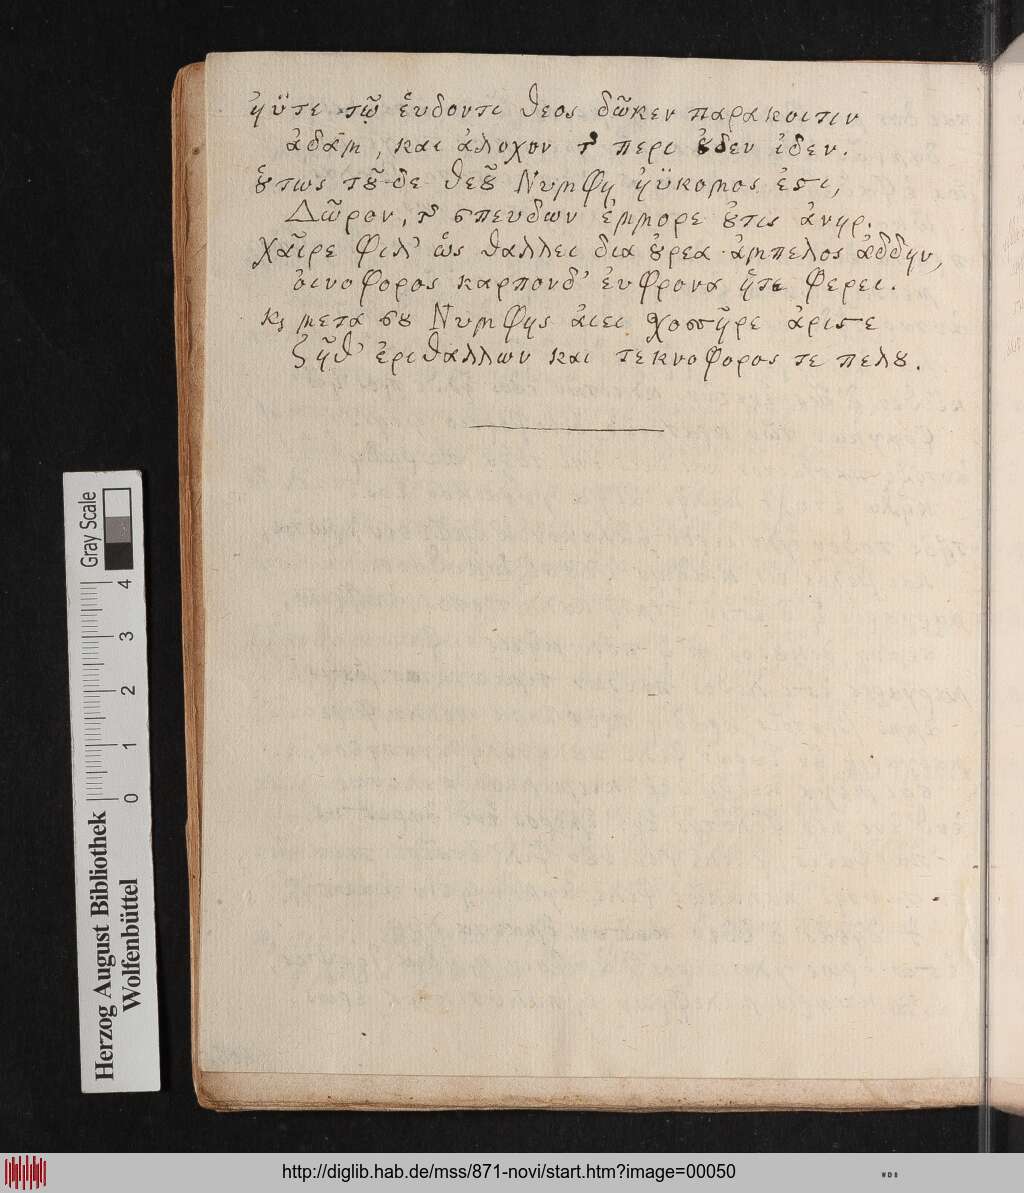 ἠΰτε τῷ ἑύδοντι θεος δῶκεν παρακοιτιν
ἀδάμ, και ἀλοχον τ͂ περι ȣ̓δεν ἰδεν.
ȣ̔τως τȣ͂ δε θεȣ͂ Νυμφη ἠΰκομος ἐϛι,
Δῶρον, τ͂ σπευδων ἐμμορε ȣ̓τις ἀνηρ.
χαῖρε φιλ' ὡς θαλλει δια ȣ̓ρεα ἀμπελος ἀδδην,
ὀινοφορος καρπονδ' ἐυφρονα ἥτε φερει.
κ̣ μετα σȣ Νυμφης ἀιει χοσσῆρε ἀριϛε
ζῆθ' ἐριθαλλων και τεκνοφορος τε πελȣ.
Herzog August Bibliothek
Wolfenbüttel
Gray Scale
0 1 2 3 4
http://diglib.hab.de/mss/871-novi/start.htm?image=00050
WDB